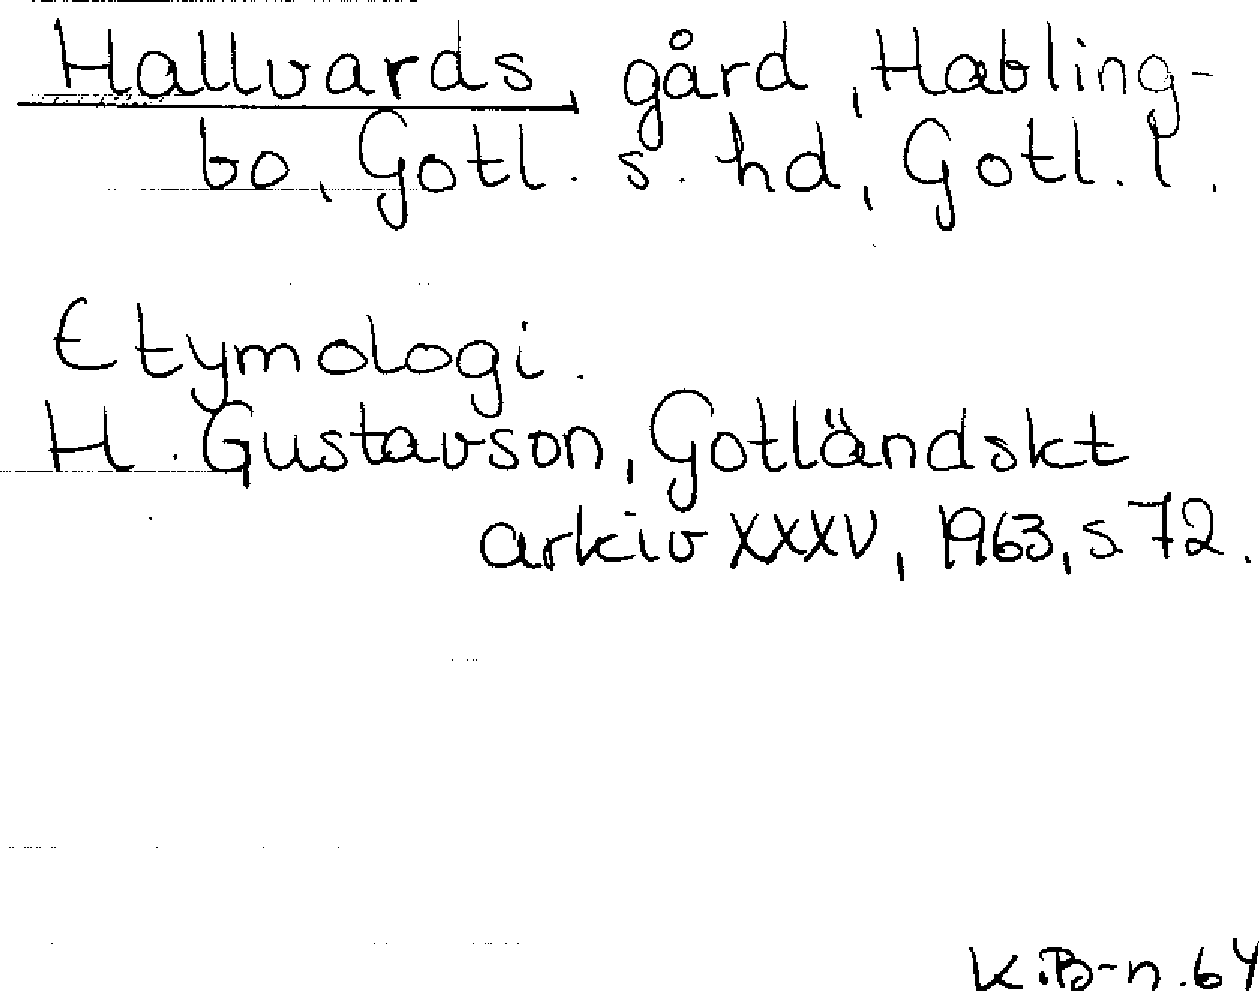 Hallvards, gård, Habling-
bo, Gotl. s. hd, Gotl. l.
Etymologi.
H. Gustavson, Gotländskt
arkiv XXXV, 1963, s 72.
K.B-n. 64